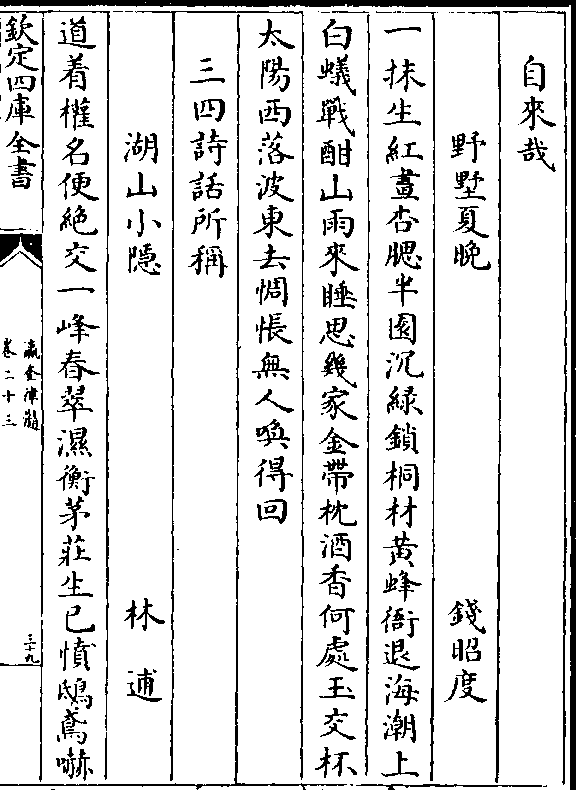 自來哉
野墅夏晚 錢昭度
一抹生紅畫杏腮半園沉綠鎖桐材黃蜂衙退海潮上
白蟻戰酣山雨來睡思幾家金帶枕酒香何處玉交杯
太陽西落波東去惆悵無人喚得回
三四詩話所稱
湖山小隱 林逋
道着權名便絶交一峰春翠濕衡茅莊生已憤鴟鳶嚇
欽定四庫全書
瀛奎律髓
卷二十三
三十九